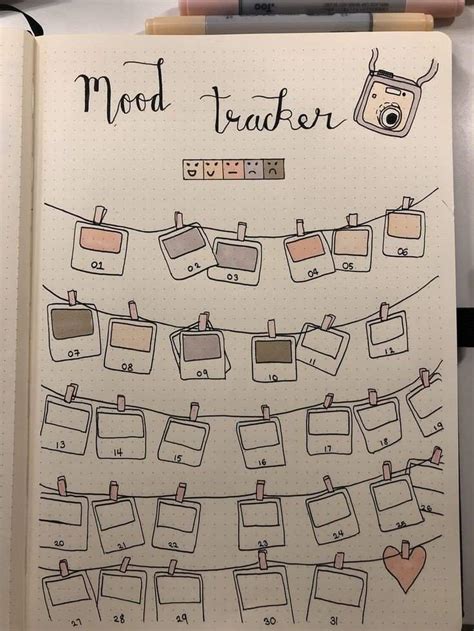 Mood tracker
01 02 03 04 05 06
07 08 09 10 11 12
13 14 15 16 17 18 19
20 21 22 23 24 25 26
27 28 29 30 31